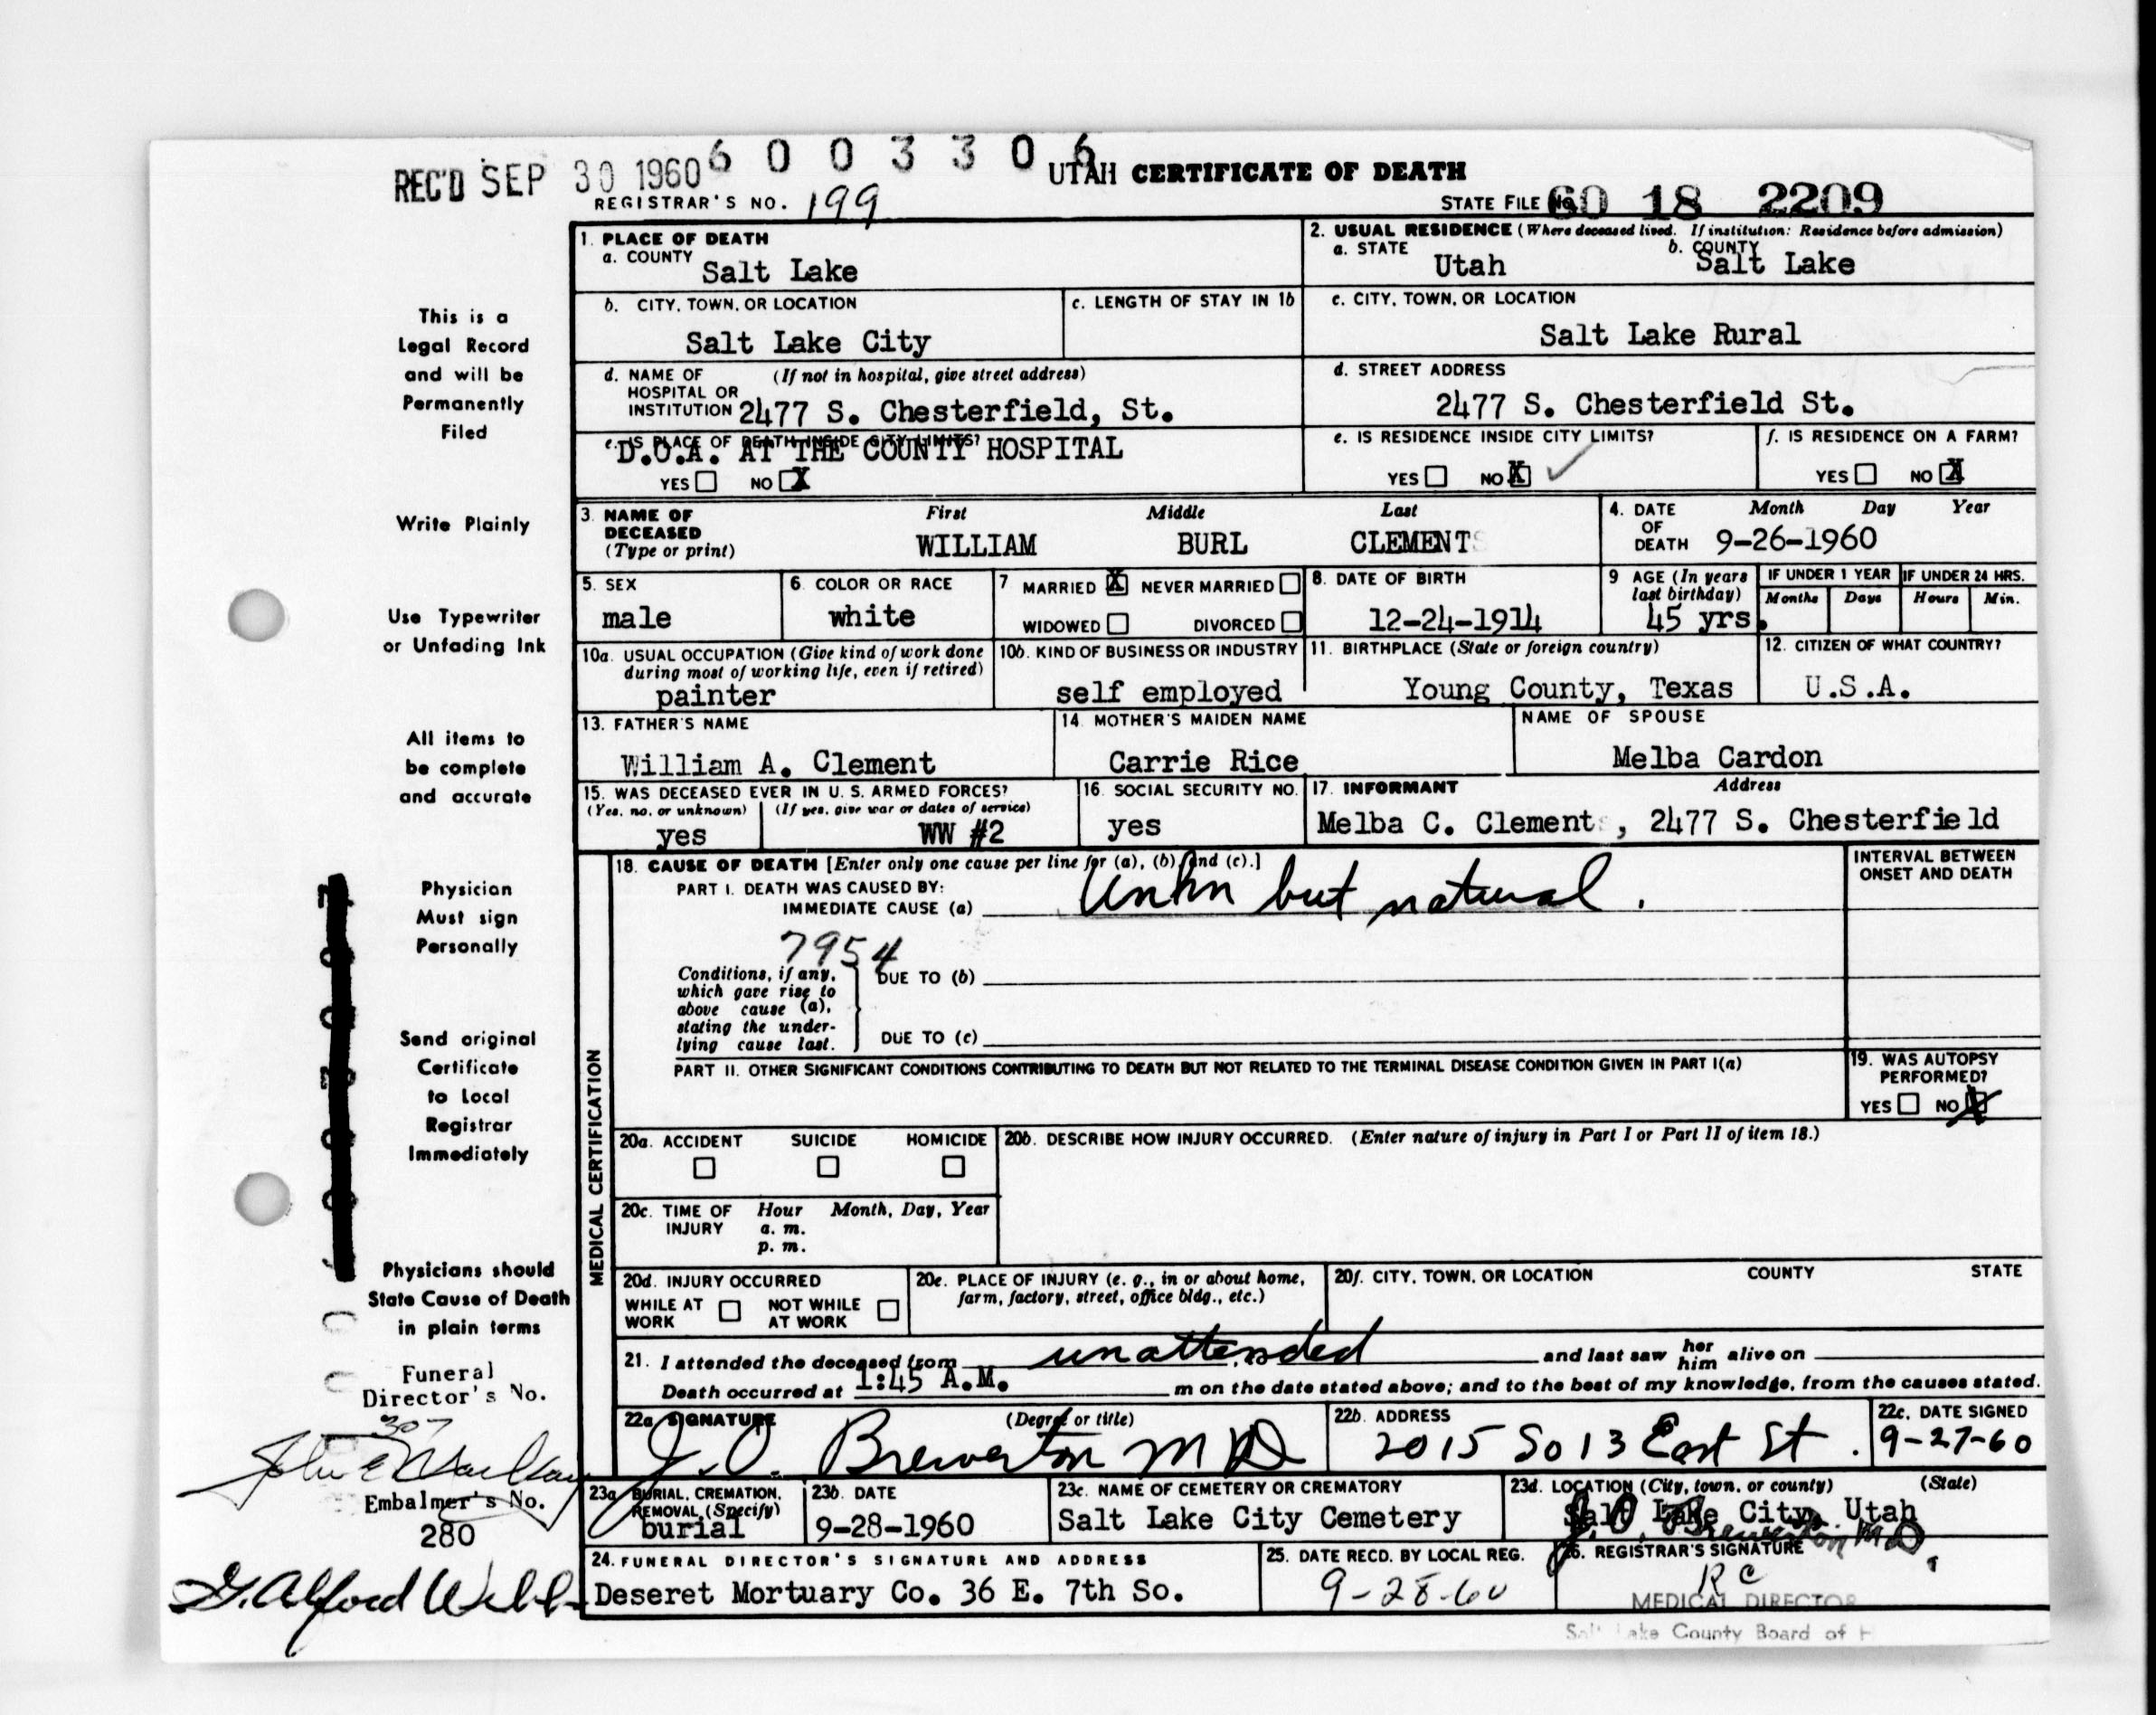 REC'D SEP 30 1960 6 0 0 3 3 0 6 UTAH CERTIFICATE OF DEATH
REGISTRAR'S NO. 199 STATE FILE 60 18 2209
1. PLACE OF DEATH
a. COUNTY Salt Lake
2. USUAL RESIDENCE (Where deceased lived. If institution: Residence before admission)
a. STATE Utah b. COUNTY Salt Lake
b. CITY, TOWN, OR LOCATION Salt Lake City
c. LENGTH OF STAY IN 1b
c. CITY, TOWN, OR LOCATION Salt Lake Rural
d. NAME OF (If not in hospital, give street address)
HOSPITAL OR
INSTITUTION 2477 S. Chesterfield, St.
d. STREET ADDRESS
2477 S. Chesterfield St.
e. IS PLACE OF DEATH INSIDE CITY LIMITS?
D.O.A. AT THE COUNTY HOSPITAL
YES NO X
e. IS RESIDENCE INSIDE CITY LIMITS?
YES NO X
f. IS RESIDENCE ON A FARM?
YES NO X
3. NAME OF DECEASED (Type or print)
First Middle Last
WILLIAM BURL CLEMENT
4. DATE OF DEATH Month Day Year
9-26-1960
5. SEX male
6. COLOR OR RACE white
7 MARRIED X NEVER MARRIED
WIDOWED DIVORCED
8. DATE OF BIRTH 12-24-1914
9 AGE (In years last birthday) 45 yrs.
IF UNDER 1 YEAR IF UNDER 24 HRS.
Months Days Hours Min.
10a. USUAL OCCUPATION (Give kind of work done
during most of working life, even if retired)
painter
10b. KIND OF BUSINESS OR INDUSTRY
self employed
11. BIRTHPLACE (State or foreign country)
Young County, Texas
12. CITIZEN OF WHAT COUNTRY?
U.S.A.
13. FATHER'S NAME
William A. Clement
14. MOTHER'S MAIDEN NAME
Carrie Rice
NAME OF SPOUSE
Melba Cardon
15. WAS DECEASED EVER IN U. S. ARMED FORCES?
(Yes, no, or unknown) (If yes, give war or dates of service)
yes WW #2
16. SOCIAL SECURITY NO.
yes
17. INFORMANT Address
Melba C. Clement , 2477 S. Chesterfield
MEDICAL CERTIFICATION
18. CAUSE OF DEATH [Enter only one cause per line for (a), (b), and (c).]
PART I. DEATH WAS CAUSED BY:
IMMEDIATE CAUSE (a) Unkn but natural.
INTERVAL BETWEEN
ONSET AND DEATH
7954
Conditions, if any,
which gave rise to
above cause (a),
stating the under-
lying cause last.
DUE TO (b)
DUE TO (c)
PART II. OTHER SIGNIFICANT CONDITIONS CONTRIBUTING TO DEATH BUT NOT RELATED TO THE TERMINAL DISEASE CONDITION GIVEN IN PART I(a)
19. WAS AUTOPSY
PERFORMED?
YES NO X
20a. ACCIDENT SUICIDE HOMICIDE
20b. DESCRIBE HOW INJURY OCCURRED. (Enter nature of injury in Part I or Part II of item 18.)
20c. TIME OF INJURY Hour Month, Day, Year
a. m.
p. m.
20d. INJURY OCCURRED
WHILE AT WORK NOT WHILE AT WORK
20e. PLACE OF INJURY (e. g., in or about home,
farm, factory, street, office bldg., etc.)
20f. CITY, TOWN, OR LOCATION COUNTY STATE
21. I attended the deceased from unattended and last saw her him alive on
Death occurred at 1:45 A.M. m on the date stated above; and to the best of my knowledge, from the causes stated.
22a SIGNATURE (Degree or title)
J. O. Brewerton M D
22b. ADDRESS
2015 So 13 East St.
22c. DATE SIGNED
9-27-60
23a BURIAL, CREMATION,
REMOVAL (Specify)
burial
23b. DATE
9-28-1960
23c. NAME OF CEMETERY OR CREMATORY
Salt Lake City Cemetery
23d. LOCATION (City, town, or county) (State)
Salt Lake City, Utah
24. FUNERAL DIRECTOR'S SIGNATURE AND ADDRESS
Deseret Mortuary Co. 36 E. 7th So.
25. DATE RECD. BY LOCAL REG.
9-28-60
26. REGISTRAR'S SIGNATURE
J. O. Brewerton M D.
RC
MEDICAL DIRECTOR
Salt Lake County Board of H
This is a
Legal Record
and will be
Permanently
Filed
Write Plainly
Use Typewriter
or Unfading Ink
All items to
be complete
and accurate
Physician
Must sign
Personally
Send original
Certificate
to Local
Registrar
Immediately
Physicians should
State Cause of Death
in plain terms
Funeral
Director's No.
307
John E
Embalmer's No.
280
G. Alford Webb